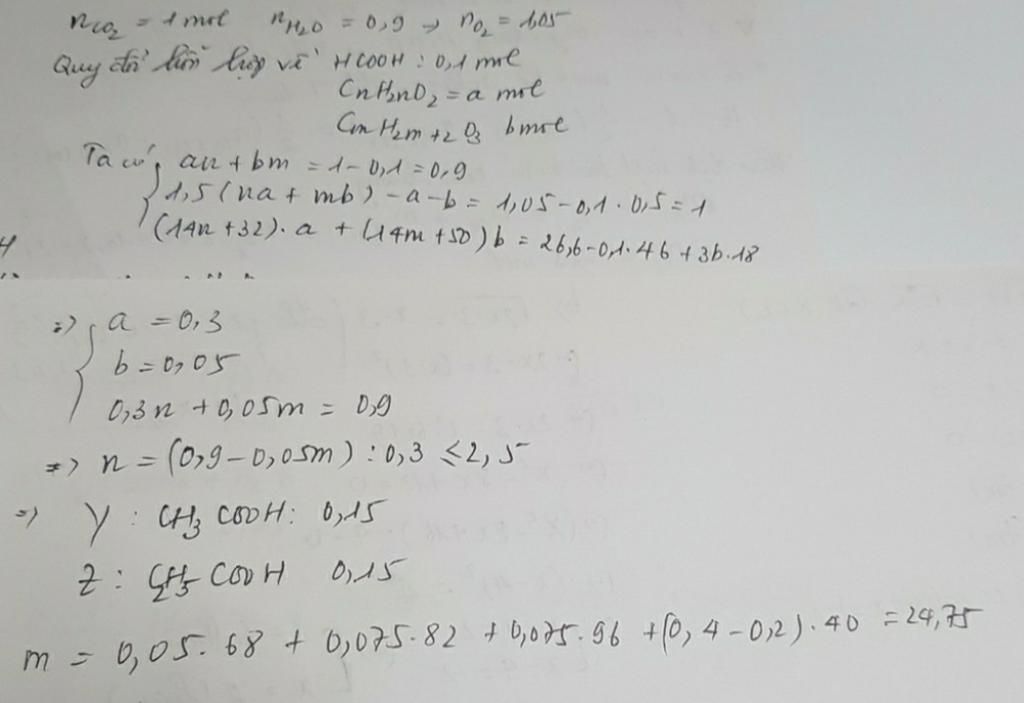 nCO2 = 1 mol nH2O = 0,9 → nO2 = 1,05
Quy đổi hỗn hợp về HCOOH : 0,1 mol
CnH2nO2 = a mol
CmH2m+2O3 b mol
Ta có, an + bm = 1 - 0,1 = 0,9
1,5(na + mb) - a - b = 1,05 - 0,1 . 0,5 = 1
(14n + 32). a + (14m + 50) b = 26,6 - 0,1. 46 + 3b.18
=> a = 0,3
b = 0,05
0,3n + 0,05m = 0,9
=> n = (0,9 - 0,05m) : 0,3 ≤ 2,5
=> Y : CH3 COOH : 0,15
Z : C2H5 COOH 0,15
m = 0,05. 68 + 0,075.82 + 0,075.96 + (0,4 - 0,2).40 = 24,75